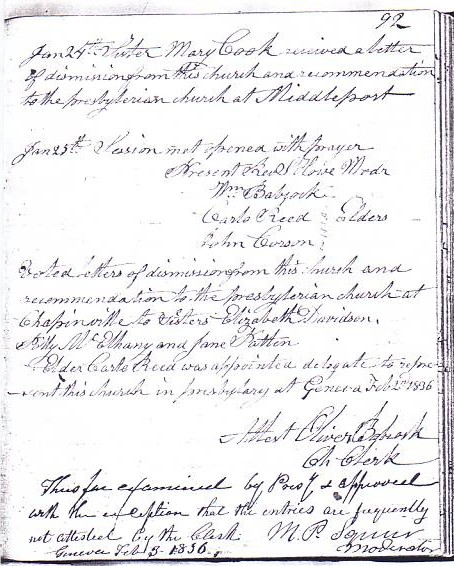 92
Jan 24th Sister Mary Cook received a letter
of dismission from this church and recommendation
to the presbyterian church at Middleport
Jan 25th Session met opened with prayer
Present Rev S Hove Modr
Wm Babcock
Carlo Reed Elders
John Corson
Voted letters of dismission from this church and
recommendation to the presbyterian church at
Chapinville to Sisters Elizabeth Davidson,
McElhany and Jane
Elder Carlo Reed was appointed delegate to repre-
sent this church in presbytary at Geneva Feb 2d 1836
Attest Oliver
Ch Clerk
Thus far examined by Presy & approved
with the exception that the entries are frequently
not attested by the Clerk M. P. Squier
Geneva Feb 3 1836. Moderator